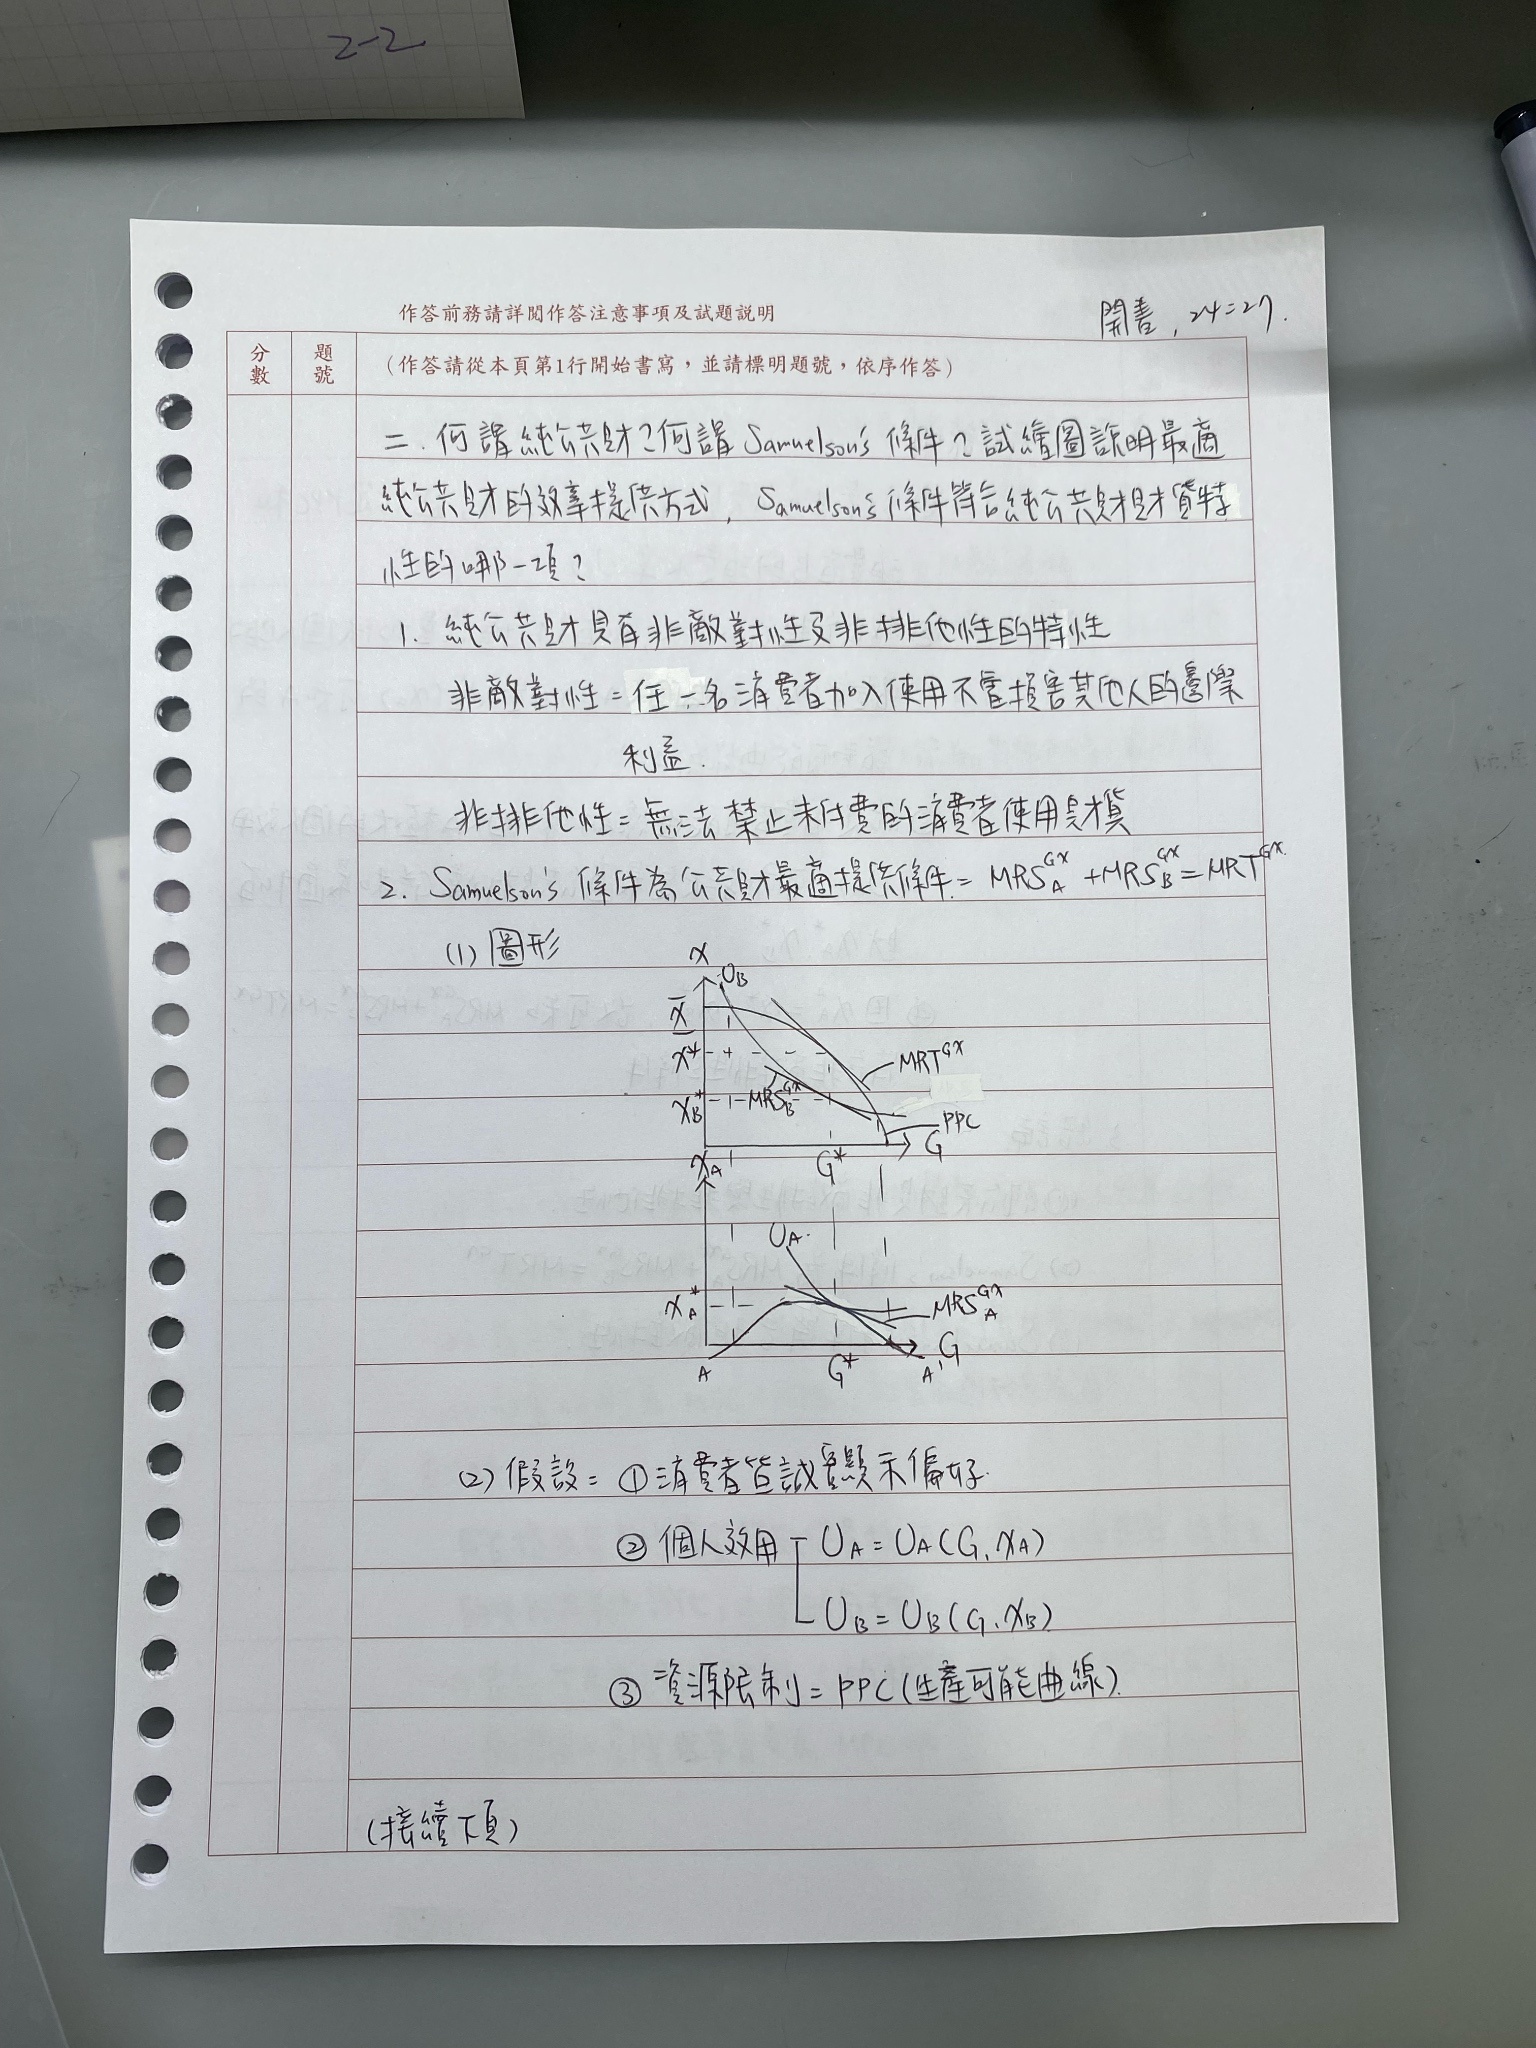 2-2
作答前務請詳閱作答注意事項及試題說明
開書, 24=27.
分數
題號
(作答請從本頁第1行開始書寫,並請標明題號,依序作答)
二. 何謂純公共財?何謂Samuelson's 條件?試繪圖說明最適
純公共財的效率提供方式, Samuelson's 條件符合純公共財財貨特
性的哪一項?
1. 純公共財具有非敵對性及非排他性的特性
非敵對性=任一名消費者加入使用不會損害其他人的邊際
利益.
非排他性=無法禁止未付費的消費者使用財貨
2. Samuelson's 條件為公共財最適提供條件= MRS_A^GX + MRS_B^GX = MRT^GX.
(1) 圖形
X
U_B
X̅
X*
MRT^GX
MRS_B^GX
X_B*
PPC
G
X_A
G*
U_A.
X_A*
MRS_A^GX
G
A
G*
A'
(2) 假設= ① 消費者皆誠實顯示偏好.
② 個人效用 U_A = U_A(G, X_A)
U_B = U_B(G, X_B)
③ 資源限制= PPC(生產可能曲線).
(接續下頁)